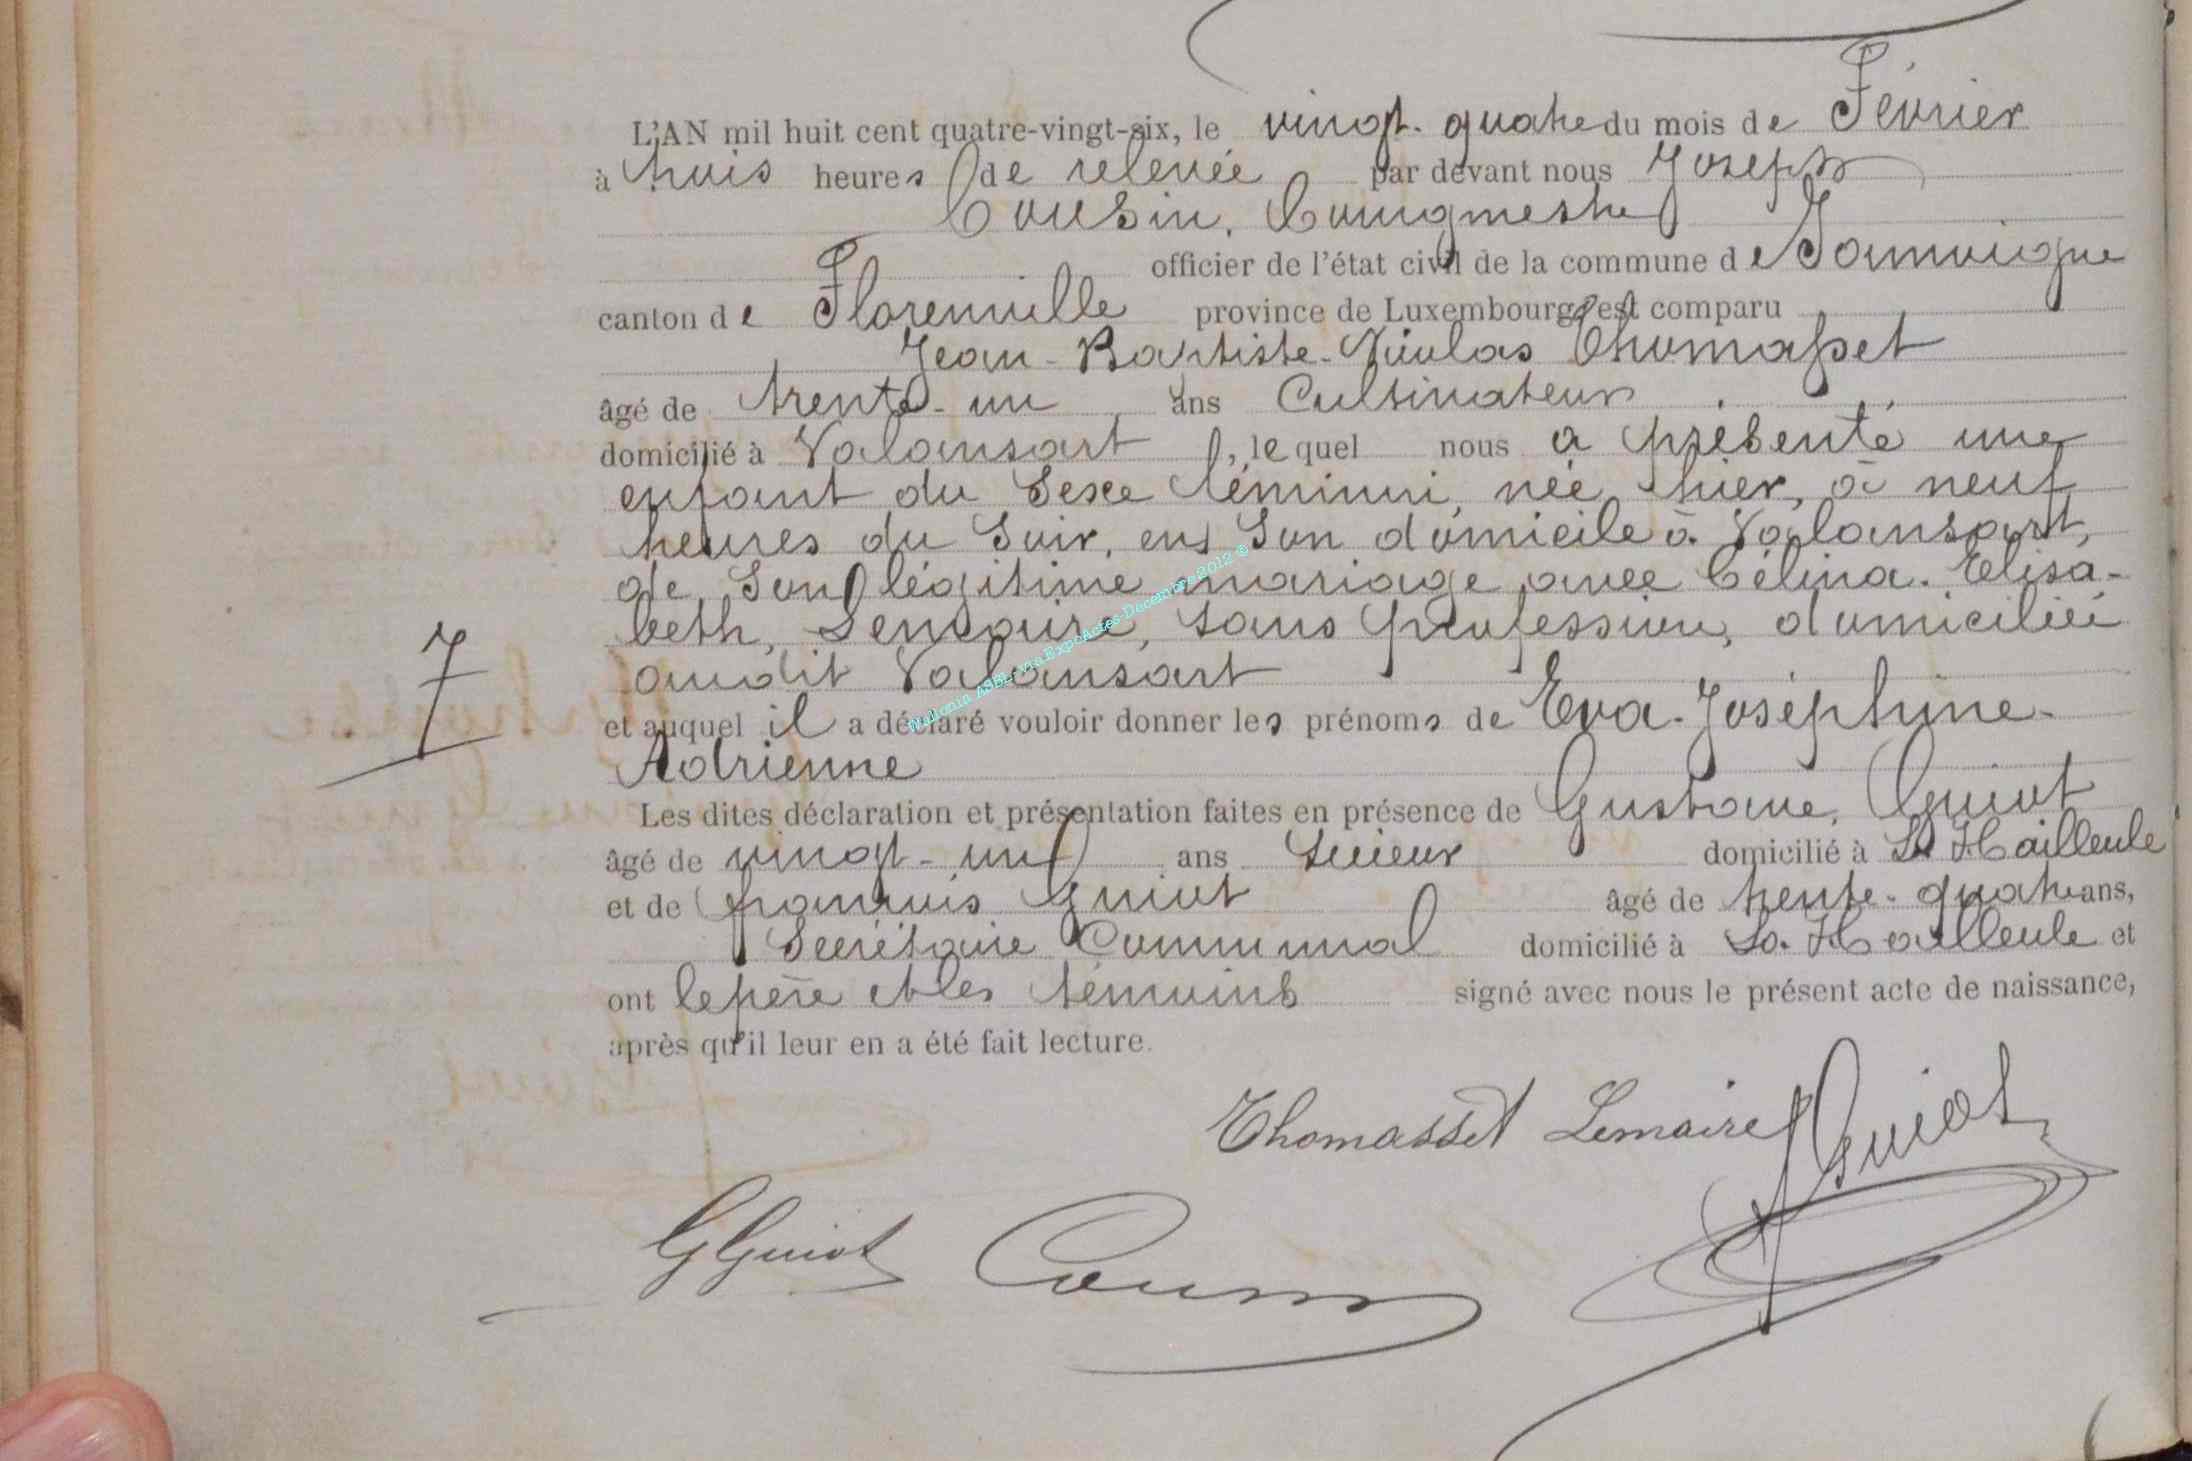 L'AN mil huit cent quatre-vingt-six, le vingt-quatre du mois de Février
à trois heures de relevée par devant nous Joseph
Cousin, bourgmestre
officier de l'état civil de la commune de Jamoigne
canton de Florenville province de Luxembourg, est comparu
Jean-Baptiste-Nicolas Thomasset
âgé de trente-un ans Cultivateur
domicilié à Valansart, le quel nous a présenté une
enfant du Sexe féminin, née hier, à neuf
heures du Soir, en Son domicile à Valansart,
de Son légitime mariage avec Célina-Elisa-
beth, Lemaire, sans profession, domiciliée
audit Valansart
7
et auquel il a déclaré vouloir donner les prénoms de Eva-Joséphine-
Adrienne
Les dites déclaration et présentation faites en présence de Gustave, Guiot
âgé de vingt-un ans Scieur domicilié à La Hailleule
et de françois Guiot âgé de trente-quatre ans,
Secrétaire Communal domicilié à La Hailleule et
ont le père et les témoins signé avec nous le présent acte de naissance,
après qu'il leur en a été fait lecture.
Thomasset Lemaire F Guiot
G Guiot Cousin
Wallonia ASBL, via ExpoActes-Decembre 2012 ©